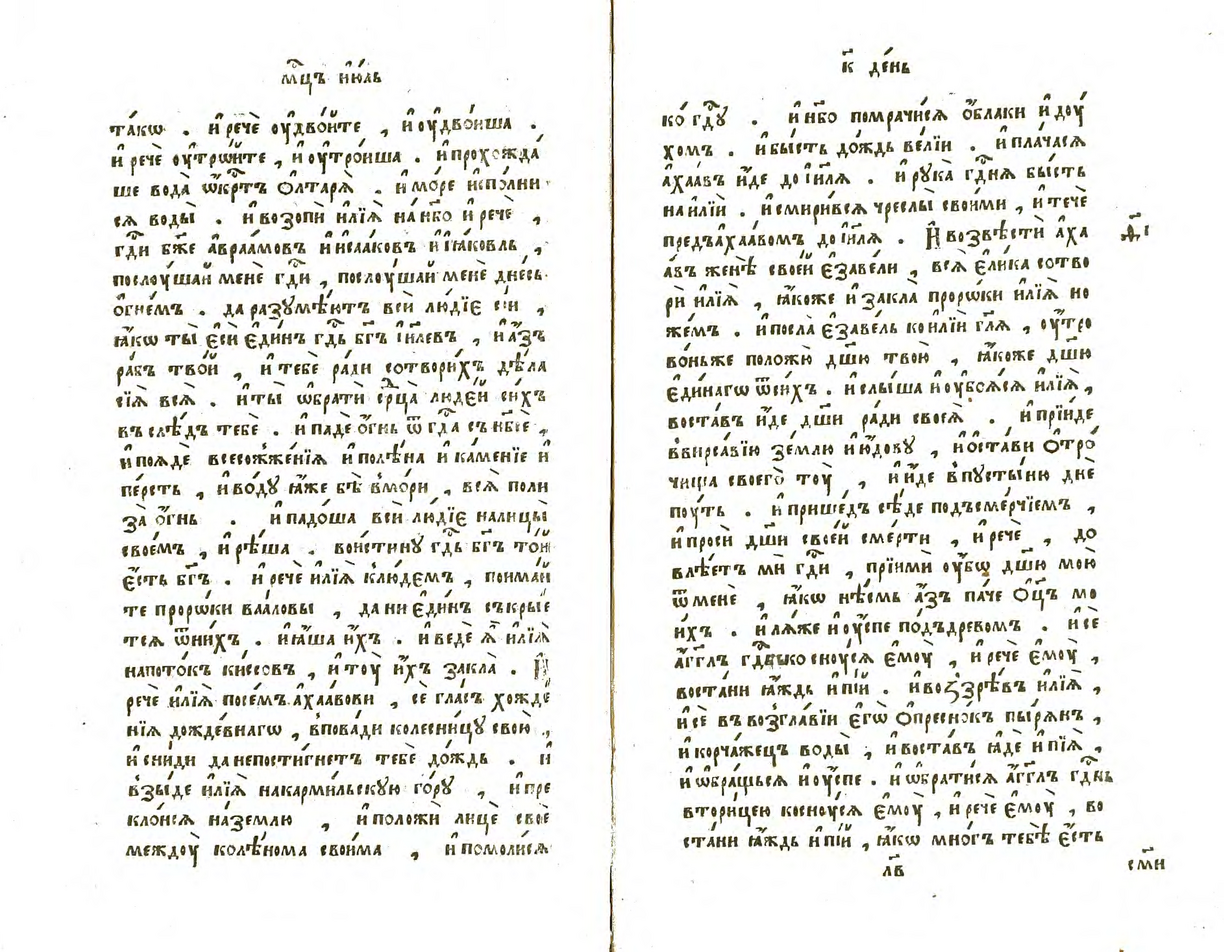 мⷭ҇цъ і҆ю́ль
та́кѡ . и҆ речѐ ѹ҆дво́йте , и҆ ѹ҆дво́иша .
и҆ речѐ ѹ҆трѡ́ите , и҆ ѹ҆тро́иша . и҆ прохожда́
ше вода̀ ѡ҆́крⷭ҇тъ ѻ҆лтарѧ̀ . и҆ мо́ре и҆спо́лни
сѧ воды̀ . и҆ возопѝ и҆лїѧ̀ на нб҃о и҆ речѐ ,
гдⷭ҇и бж҃е а҆враа́мовъ и҆ и҆саа́ковъ и҆ і҆а́ковль ,
послѹ́шай менѐ гдⷭ҇и , послѹ́шай менѐ дне́сь
ѻ҆гне́мъ . да разꙋмѣ́ютъ вси́ лю́дїє сі́и ,
ꙗ҆́кѡ ты̀ є҆сѝ є҆ди́нъ гдⷭ҇ь бг҃ъ і҆и҃левъ , и҆ а҆́зъ
ра́бъ тво́й , и҆ тебѐ ра́ди сотвори́хъ дѣ́ла
сїѧ̀ всѧ̀ . и҆ ты̀ ѡ҆братѝ срⷣца людє́й си́хъ
въ слѣ́дъ тебѐ . и҆ падѐ ѻ҆́гнь ѿ гдⷭ҇а съ нб҃се ,
и҆ поѧдѐ всесожже́нїѧ и҆ полѣ́на и҆ ка́менїе и҆
пе́рсть , и҆ во́дꙋ ꙗ҆́же бѣ̀ в̾мо́ри , всѧ̀ поли
за̀ ѻ҆́гнь . и҆ падо́ша вси́ лю́дїє на лицы̀
свое́мъ , и҆ рѣ́ша . вои́стинꙋ гдⷭ҇ь бг҃ъ то́и
є҆́сть бг҃ъ . и҆ речѐ и҆лїѧ̀ к̾лю́демъ , пойма́й
те проро́ки ваа́ловы , да ни є҆ди́нъ съкры́е
тсѧ ѿ ни́хъ . и҆ ꙗ҆́ша и҆̀хъ . и҆ веде ѧ҆̀ и҆лїѧ̀
на пото́къ киссовъ , и҆ тѹ̀ и҆̀хъ закла̀ . И҆
речѐ и҆лїѧ̀ по се́мъ а҆хаа́вови , сѐ гла́съ хожде́
нїѧ дожде́внагѡ , в̾поведи колесни́цꙋ свою̀ ,
и҆ сни́ди да не пости́гнетъ тебѐ до́ждь . и҆
взы́де и҆лїѧ̀ на карми́льскꙋю го́рꙋ , и҆ пре
кло́нсѧ на́ землю , и҆ положѝ лицѐ своѐ
междѹ̀ колѣ́нома свои́ма , и҆ помоли́сѧ
к҃ де́нь
ко гдⷭ҇ꙋ . и҆ нб҃о помрачи́сѧ ѻ҆́блаки и҆ дѹ́
хомъ . и҆ бы́сть до́ждь ве́лїи . и҆ пла́часѧ
а҆хаа́въ и҆́де до і҆и҃лѧ . и҆ рꙋка̀ гдⷭ҇нѧ бы́сть
на и҆лїѝ . и҆ смири́всѧ чре́слы свои́ми , и҆ течѐ
предъ а҆хаа́вомъ до і҆и҃лѧ . И҆ возвѣстѝ а҆ха
а҆́въ женѣ̀ свое́й є҆заве́ли , всѧ̀ є҆ли́ка сотво
рѝ и҆лїѧ̀ , ꙗ҆́коже и҆ закла̀ проро́ки и҆лїѧ̀ но
же́мъ . и҆ посла̀ є҆заве́ль ко и҆лїѝ гл҃ѧ , ѹ҆́тро
во́ньже положю̀ дш҃ю твою̀ , ꙗ҆́коже дш҃ю
є҆ди́нагѡ ѿ си́хъ . и҆ слы́ша и҆ ѹ҆боѧ́сѧ и҆лїѧ̀ ,
воста́въ и҆́де дш҃и ра́ди своеѧ̀ . и҆ прїи́де
в̾вирсаві́ю зе́млю и҆ю́довꙋ , и҆ ѡ҆ста́ви ѻ҆тро́
чища своего̀ тѹ̀ , и҆ и҆́де в̾пꙋсты́ню днѐ
пѹ́ть . и҆ прише́дъ сѣ́де подъ сме́рчїемъ ,
и҆ просѝ дш҃и свое́й сме́рти , и҆ речѐ , до
влѣ́етъ мѝ гдⷭ҇и , прїимѝ ѹ҆́бѡ дш҃ю мою̀
ѿ менѐ , ꙗ҆́кѡ нѣ́смь а҆́зъ па́че ѻ҆ц҃ъ мо
и́хъ . и҆ лѧ́же и҆ ѹ҆спѐ подъ дре́вомъ . и҆ се
а҆́гг҃лъ гдⷭ҇ень коснѹ́сѧ є҆мѹ̀ , и҆ речѐ є҆мѹ̀ ,
воста́ни ꙗ҆́ждь и҆ пі́й . и҆ воззрѣ́въ и҆лїѧ̀ ,
и҆ сѐ въ возгла́вїи є҆гѡ̀ ѻ҆пре́снокъ пы́рѧнъ ,
и҆ корча́жецъ воды̀ , и҆ воста́въ ꙗ҆́де и҆ пїѧ̀ ,
и҆ ѡ҆бра́щьсѧ и҆ ѹ҆́спе . и҆ ѡ҆брати́сѧ а҆́гг҃лъ гдⷭ҇нь
втори́цею коснѹ́сѧ є҆мѹ̀ , и҆ речѐ є҆мѹ̀ , во
ста́ни ꙗ҆́ждь и҆ пі́й , ꙗ҆́кѡ мно́гъ тебѣ̀ є҆́сть
лв